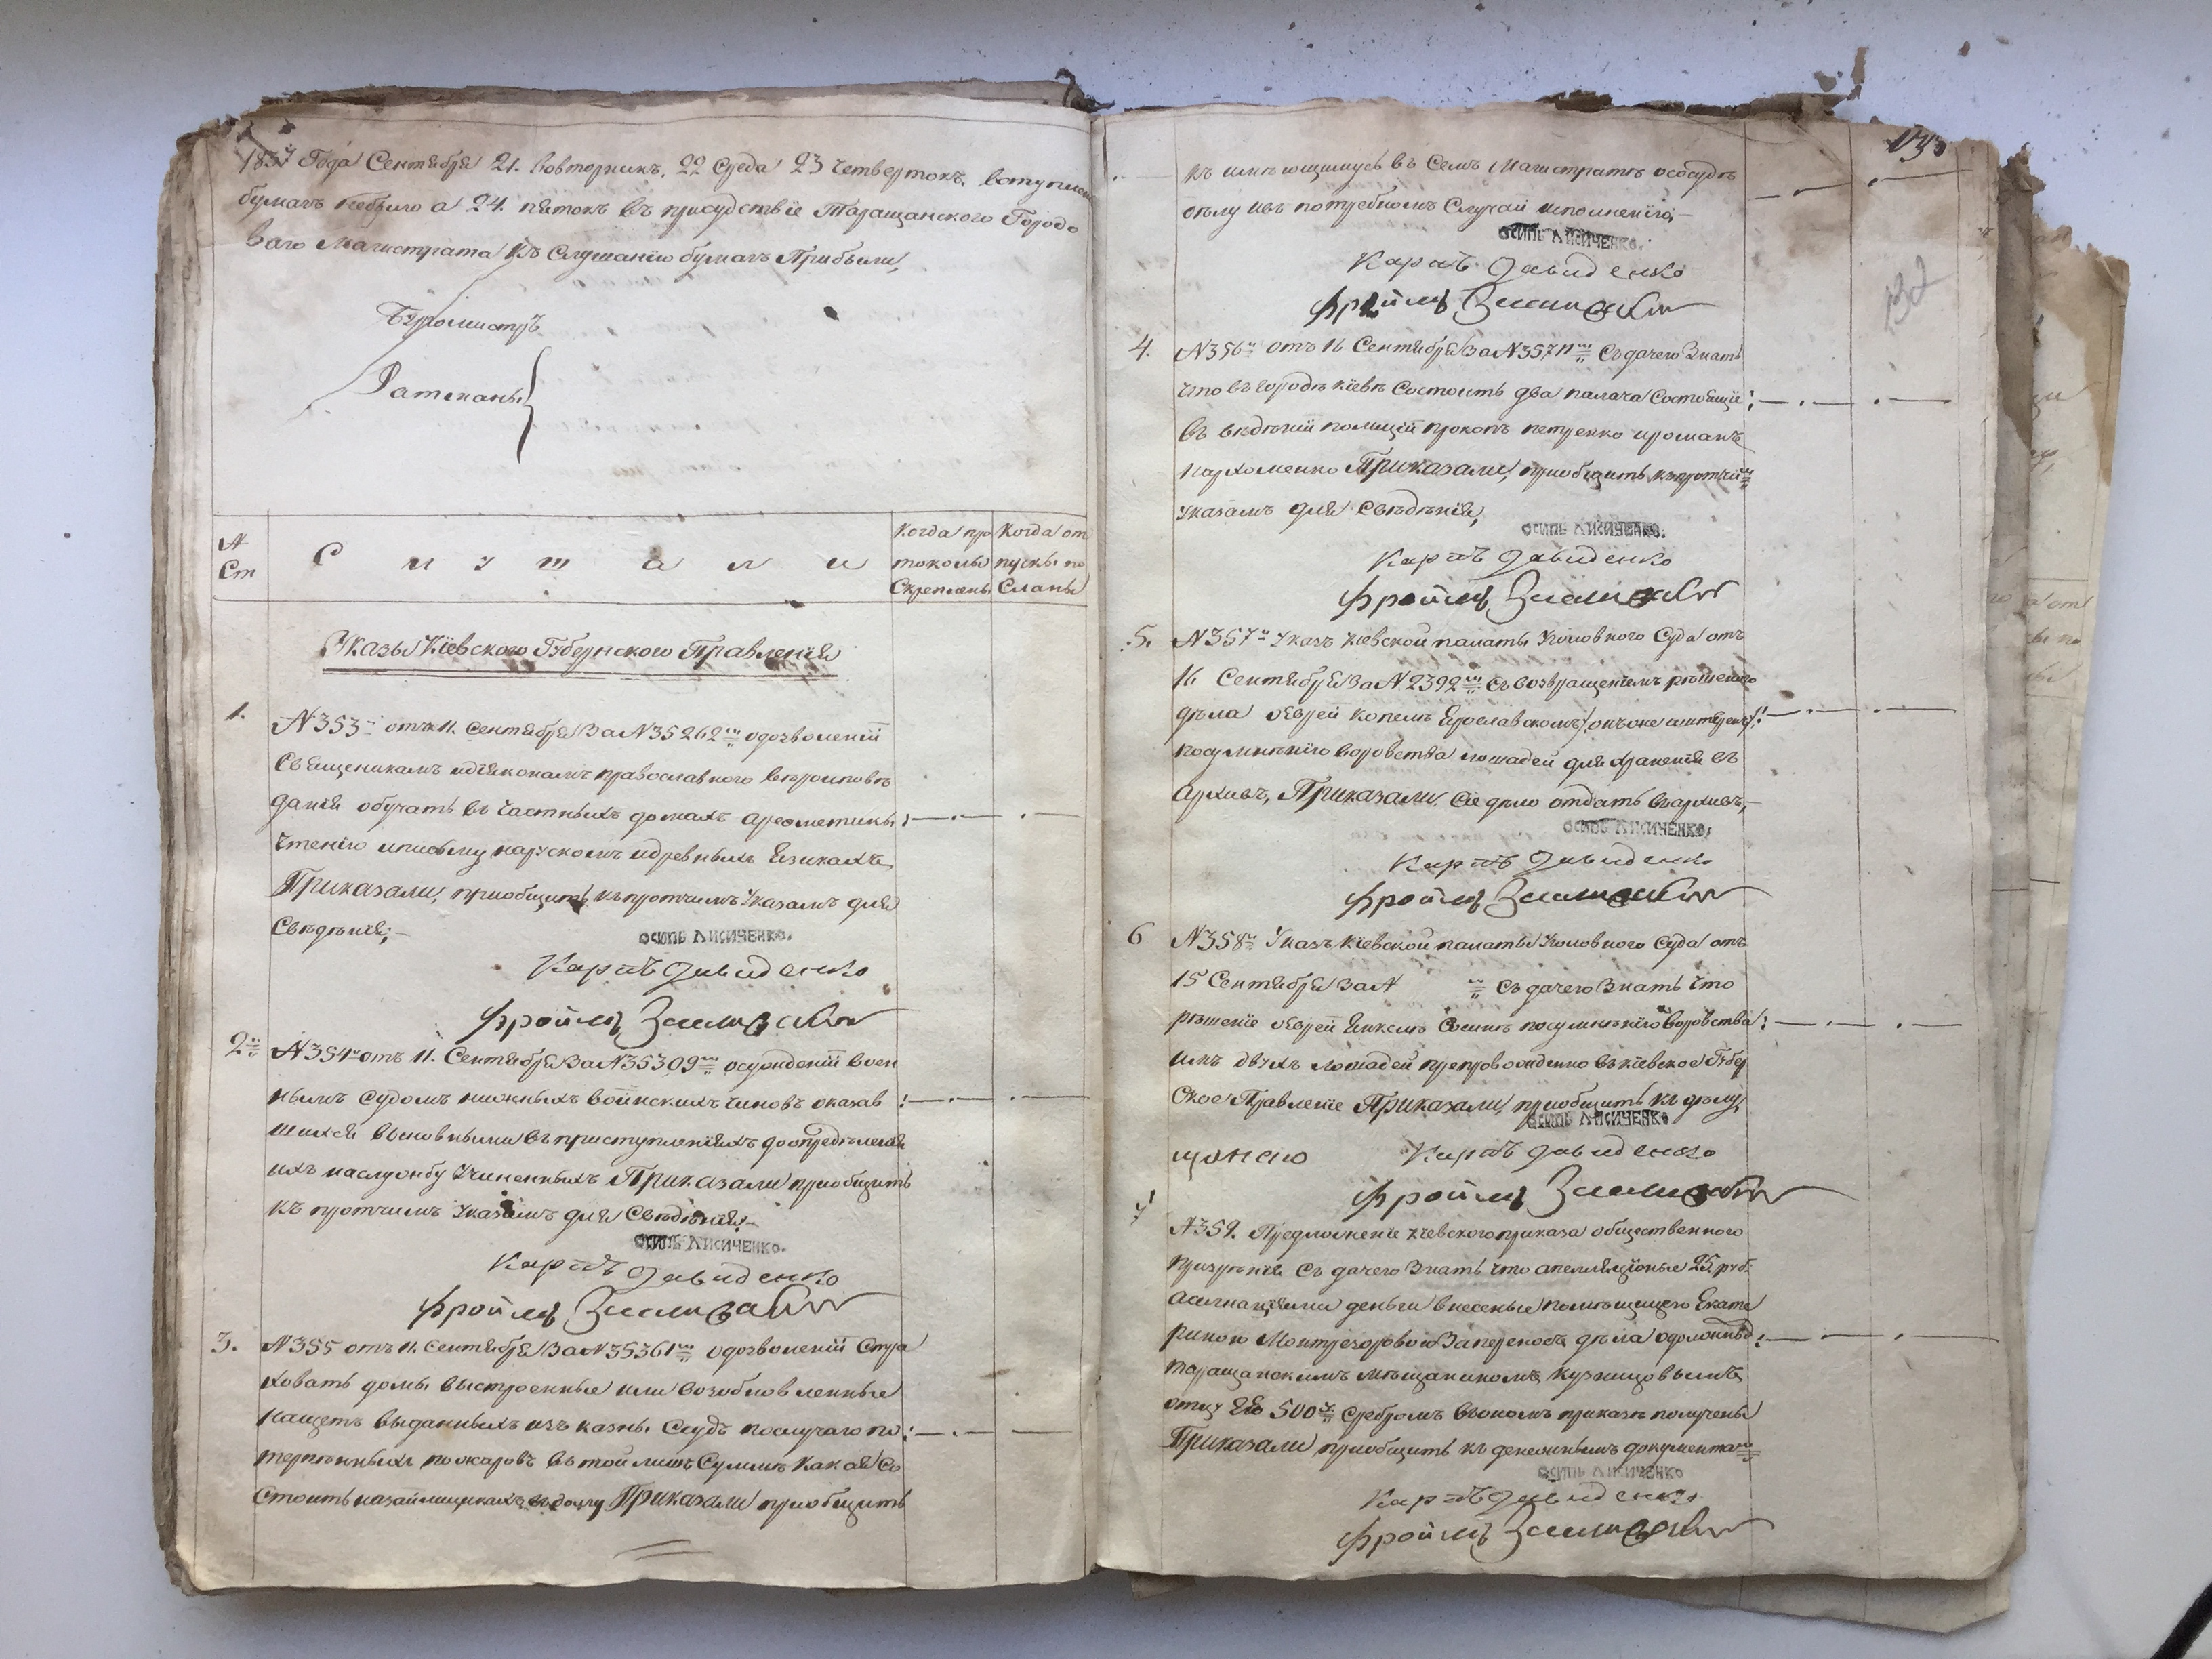 1837 Года Сентября 21. вовторникъ, 22 Среда 23 Четвертокъ, вступлен
бумагъ небуло а 24. пятокъ въ присудствіе Таращанского Городо
ваго Магистрата къ Слушанію бумагъ Прибыли,
Бурмистръ
Ратманы
N Ст
С л у ш а л и
Когда про токолы Скреплены
Когда от пуски по Сланы
Указы Кіевского Губернского Правленія
1.
N 353 отъ 11. Сентября За N 35262 о дозволеніи
Священикамъ идіяконамъ православного вероисповѣ
данія обучать въ Частныхъ домахъ арефметики,
Чтенію иписму нарускомъ идревныхъ Езикахъ,
Приказали, приобщить къпротчимъ Указамъ для
Свѣдѣнія,
ОСИПЪ ЛИСИЧЕНКО.
Карпъ Давиденко
2
N 354 отъ 11. Сентября За N 35309 осужденіи воен
нымъ Судомъ нижныхъ воинскихъ Чиновъ оказав
шихся виновными въ приступленіяхъ доопределенія
ихъ наслужбу Учиненныхъ Приказали приобщить
къ протчимъ Указамъ для Сведенія
ОСИПЪ ЛИСИЧЕНКО.
Карпъ Давиденко
3.
N 355 отъ 11. Сентября За N 35361 о дозволеніи Стра
ховать домы выстроенные или возобновленные
нащетъ выданныхъ изъ казны Ссудъ послучаю по
терпенныхъ пожаровъ въ той лишъ Суммѣ какая Со
Стоить назаймщикахъ въдолгу Приказали приобщить
къ имѣющимусь въ Семъ Магистратѣ осбсудѣ
дѣлу ивъ потребномъ Случаи исполненію,
ОСИПЪ ЛИСИЧЕНКО.
Карпъ Давиденко
4.
N 356 отъ 16 Сентября За N 35711 Съ дачею Знать
что въ городѣ Кіевѣ Состоить два палача Состоящіе
въ вѣденіи полиціи прокопъ петренко ироманъ
пархоменко Приказали, приобщить къпротчим
Указамъ для Свѣдѣнія,
ОСИПЪ ЛИСИЧЕНКО.
Карпъ Давиденко
5.
N 357 Указъ Кіевской палаты Уголовного Суда отъ
16 Сентября За N 2392 съ возвращеніемъ рѣшенного
дѣла оеврей Копелъ Ерославскомъ
посумнѣнію воровства лошадей для храненія въ
Архивъ, Приказали, Сіе дѣло отдать въархивъ,
ОСИПЪ ЛИСИЧЕНКО.
Карпъ Давиденко
6
N 358 Указъ Кіевской палаты Уголовного Суда отъ
15 Сентября За N съ дачею Знать что
рѣшеніе оеврей посумнѣнію воровства
имъ двухъ лошадей препровожденно въкіевское Губер
Ское Правленіе Приказали, приобщить къ дѣлу
ОСИПЪ ЛИСИЧЕНКО
Карпъ Давиденко
7
N 359. Предложеніе Кіевского приказа общественного
призрѣнія Съ дачею Знать что апеляціоные 25. руб.
асигнаціями деньги внесеные помѣщицею Екате
риною за переносъ дѣла одолжныд
таращанскимъ мѣщаниномъ Кузницовымъ
отцу Ею 500 Сребромъ въономъ приказѣ получены
Приказали приобщить къ денежнымъ документам
ОСИПЪ ЛИСИЧЕНКО
Карпъ Давиденко